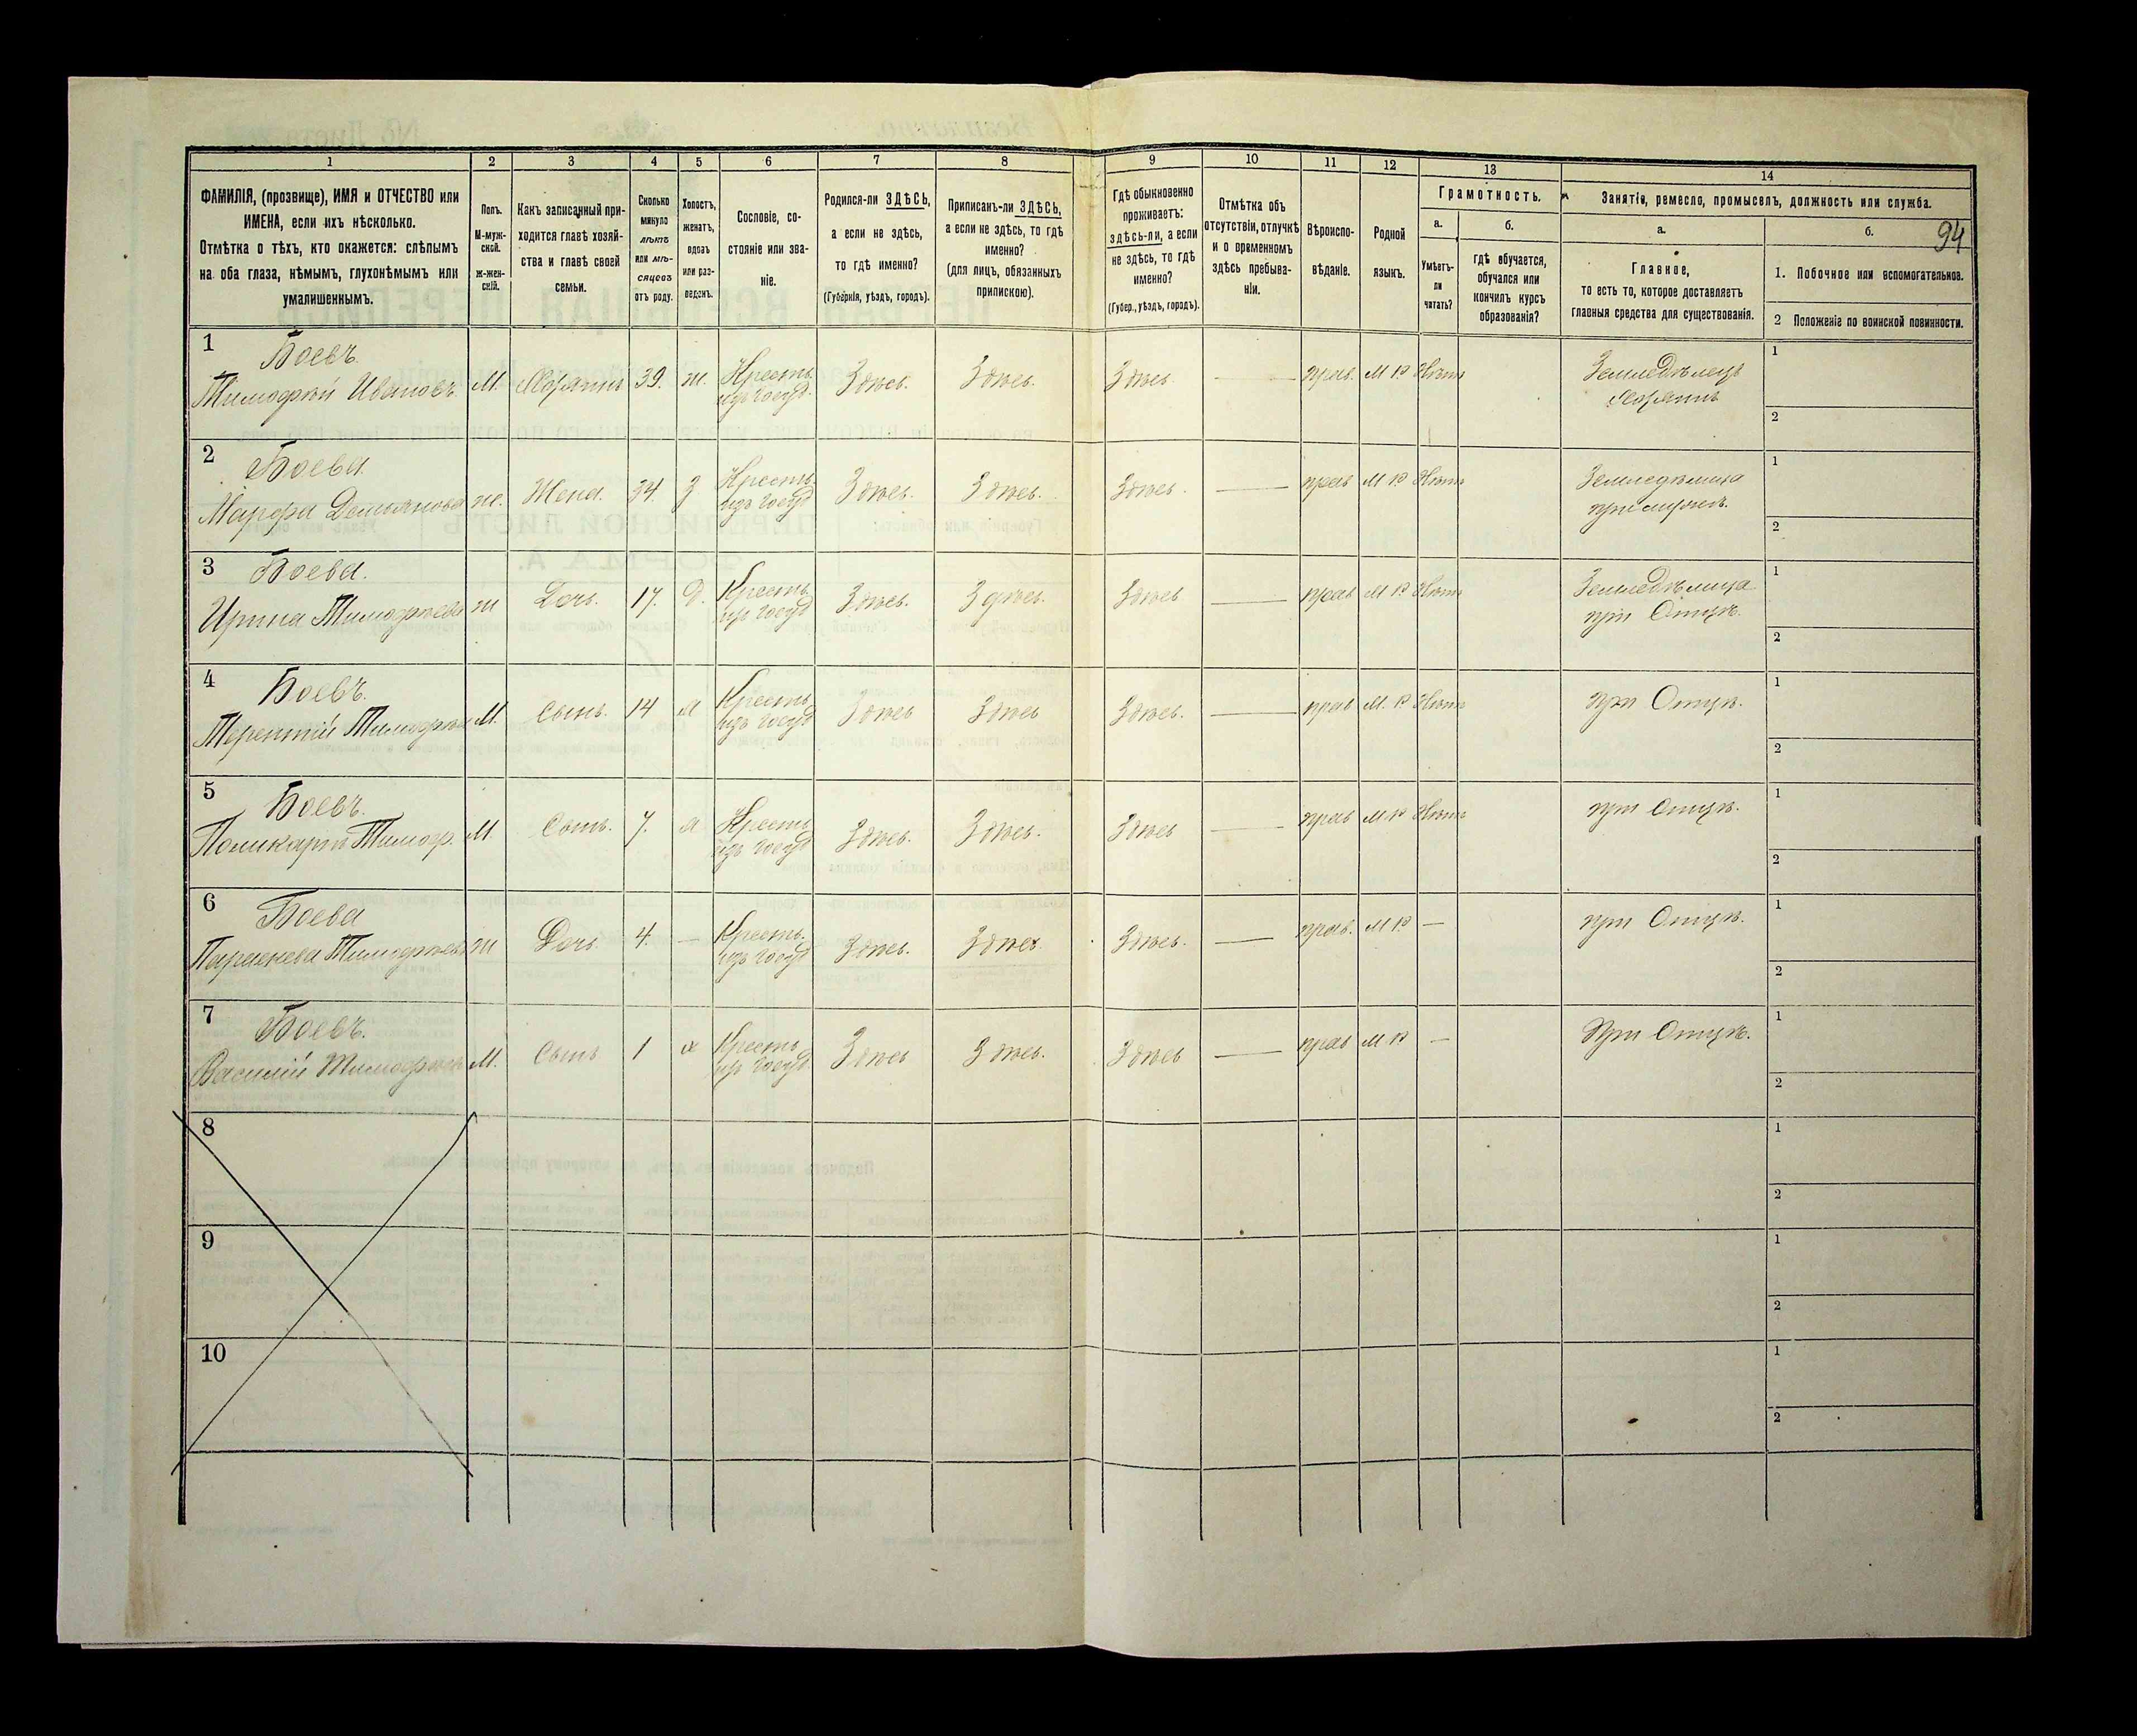 1 2 3 4 5 6 7 8 9 10 11 12 13 14
ФАМИЛІЯ, (прозвище), ИМЯ и ОТЧЕСТВО или
ИМЕНА, если ихъ нѣсколько.
Отмѣтка о тѣхъ, кто окажется: слѣпымъ
на оба глаза, нѣмымъ, глухонѣмымъ или
умалишеннымъ.
Полъ.
М-муж-
ской.
ж-жен-
скій.
Какъ записанный при-
ходится главѣ хозяй-
ства и главѣ своей
семьи.
Сколько
минуло
лѣтъ
или мѣ-
сяцевъ
отъ роду.
Холостъ,
женатъ,
вдовъ
или раз-
веденъ.
Сословіе, со-
стояніе или зва-
ніе.
Родился-ли ЗДѢСЬ,
а если не здѣсь,
то гдѣ именно?
(Губернія, уѣздъ, городъ).
Приписанъ-ли ЗДѢСЬ,
а если не здѣсь, то гдѣ
именно?
(для лицъ, обязанныхъ
припискою).
Гдѣ обыкновенно
проживаетъ:
здѣсь-ли, а если
не здѣсь, то гдѣ
именно?
(Губер., уѣздъ, городъ).
Отмѣтка объ
отсутствіи, отлучкѣ
и о временномъ
здѣсь пребыва-
ніи.
Вѣроиспо-
вѣданіе.
Родной
языкъ.
Грамотность.
а.
Умѣетъ-
ли
читать?
б.
гдѣ обучается,
обучался или
кончилъ курсъ
образованія?
Занятіе, ремесло, промыселъ, должность или служба.
а.
Главное,
то есть то, которое доставляетъ
главныя средства для существованія.
б.
94
1. Побочное или вспомогательное.
2 Положеніе по воинской повинности.
1 Боевъ
Тимофѣй Ивановъ М. Хозяинъ 39. ж. Кресть. Здѣсь. Здѣсь. Здѣсь — прав. М Р Нѣтъ Земледѣлецъ 1
изъ госуд. Хозяинъ 2
2 Боева
Марфа Демьянова ж. Жена. 34. З Кресть. Здѣсь. Здѣсь. Здѣсь. — прав М Р Нѣтъ 1
изъ госуд при мужѣ. 2
3 Боева.
Ирина Тимофѣева ж Дочь. 17. Д. Кресть. Здѣсь. Здѣсь. Здѣсь — прав М Р Нѣтъ Земледѣлица 1
изъ госуд при Отцѣ. 2
4 Боевъ.
Терентій М. Сынъ. 14 Кресть. Здѣсь Здѣсь Здѣсь. — прав М. Р Нѣтъ при Отцѣ. 1
изъ госуд 2
5 Боевъ.
Поликарпъ Тимоф. М. Сынъ. 7. Кресть. Здѣсь. Здѣсь. Здѣсь — прав М Р Нѣтъ при Отцѣ. 1
изъ госуд 2
6 Боева
Тимофѣева ж Дочь 4. — Кресть. Здѣсь. Здѣсь. Здѣсь. — прав. М Р — при Отцѣ. 1
изъ госуд 2
7 Боевъ.
Василій М. Сынъ 1 Кресть Здѣсь Здѣсь. Здѣсь — прав М Р — При Отцѣ. 1
изъ госуд 2
8 1
2
9 1
2
10 1
2